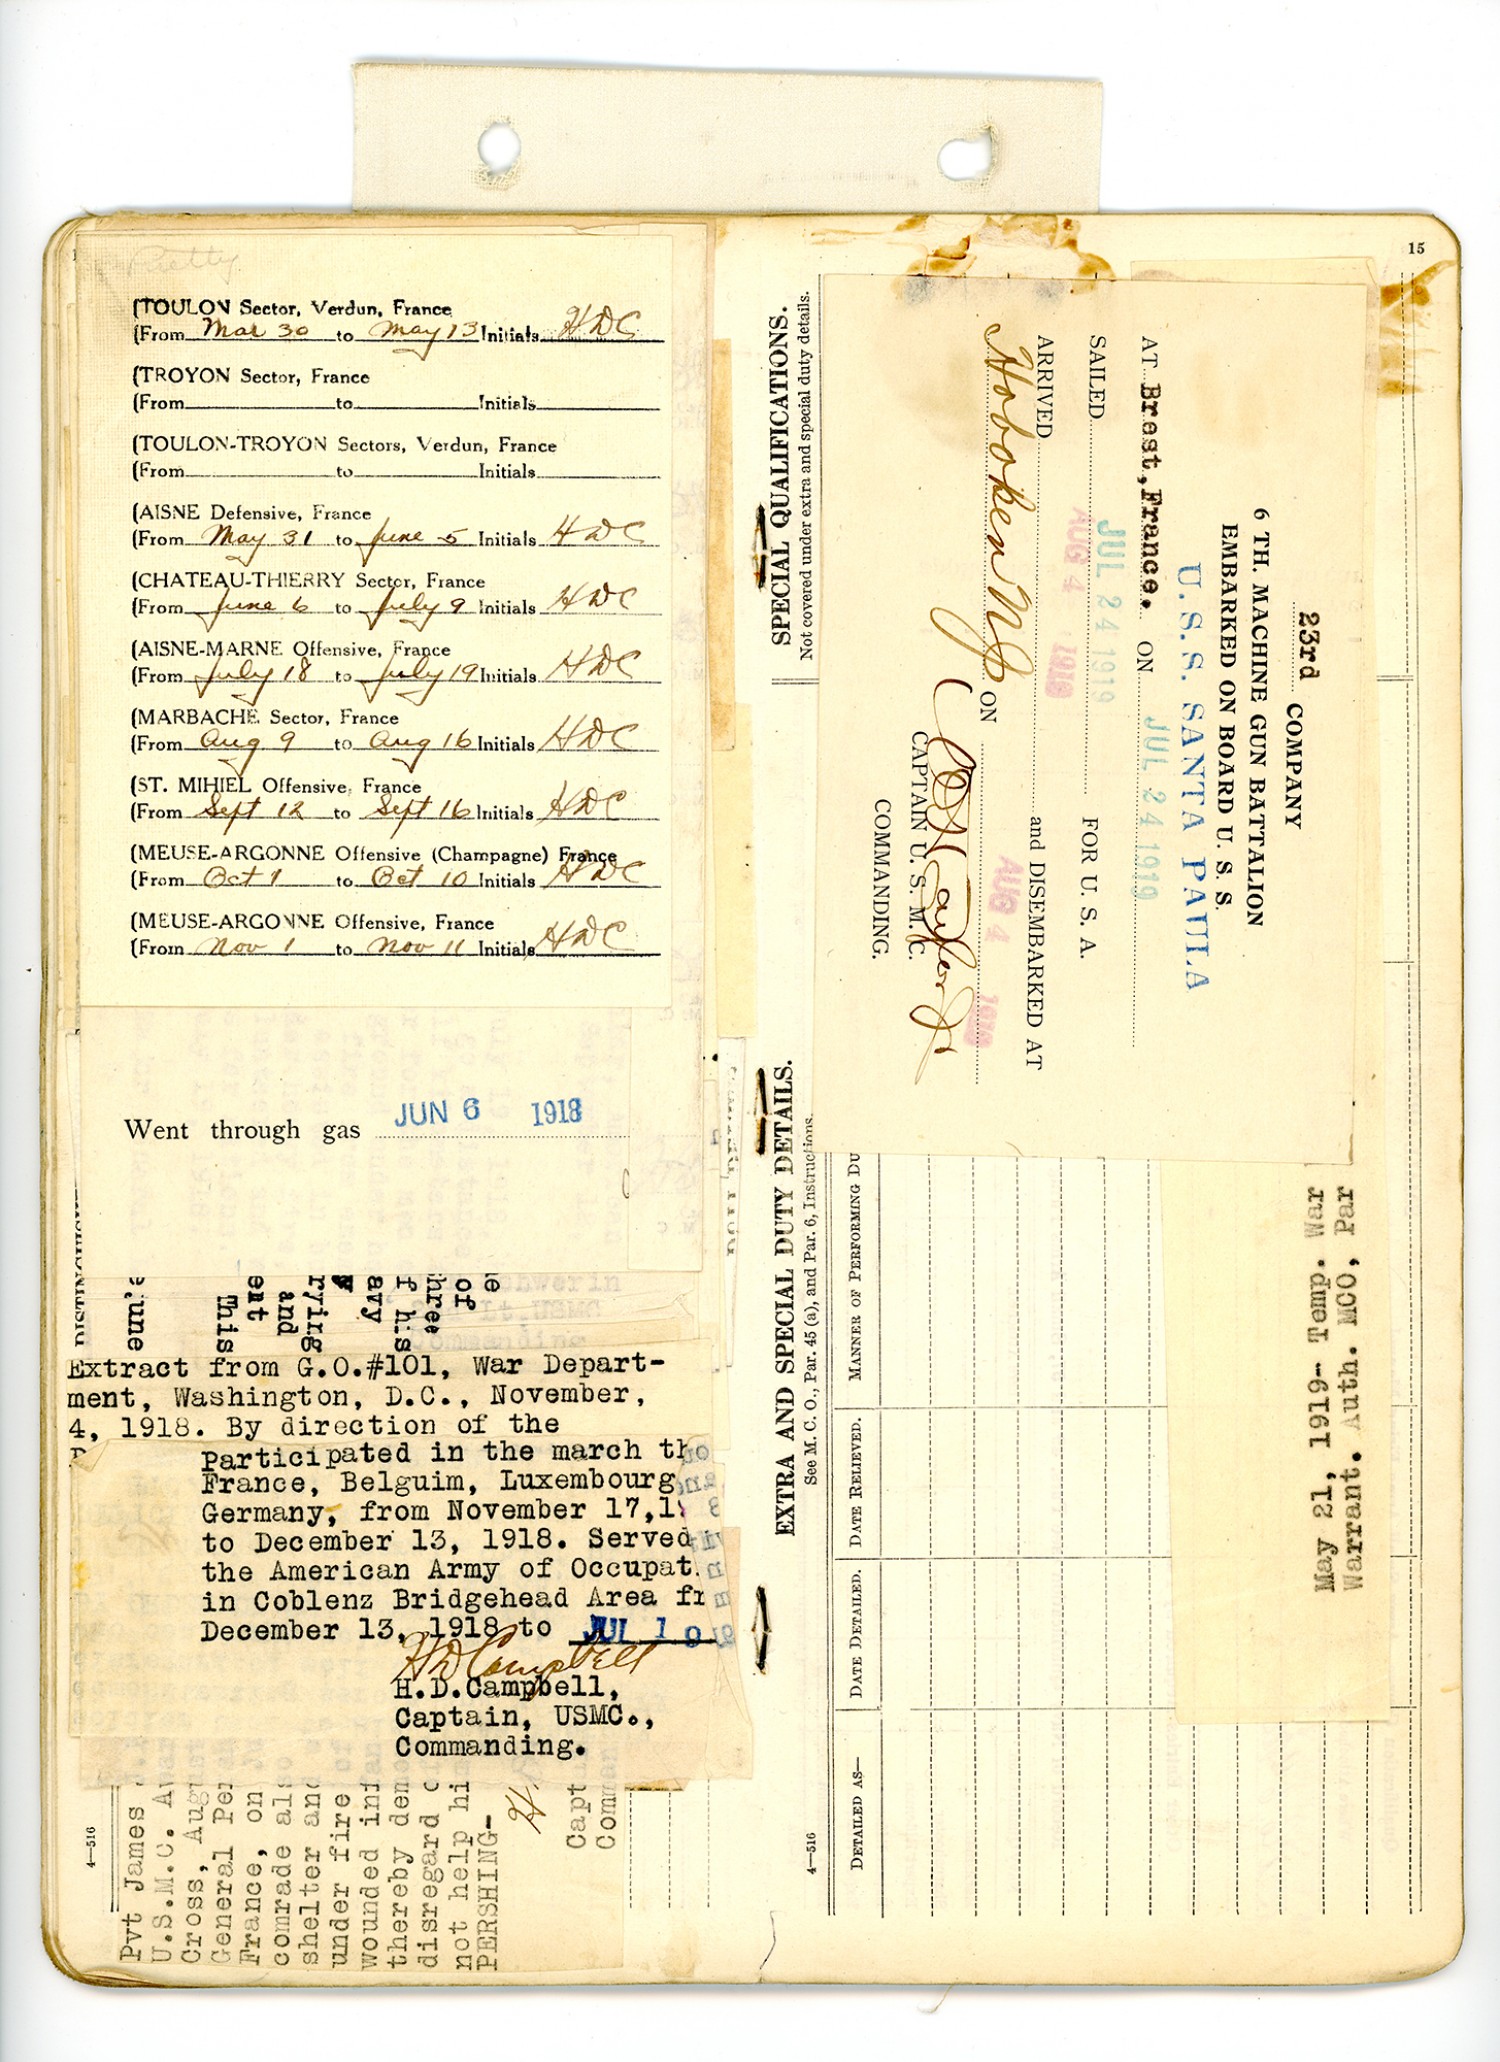 Pretty
(TOULON Sector, Verdun, France
(From Mar 30 to May 13 Initials HDC
(TROYON Sector, France
(From to Initials
(TOULON-TROYON Sectors, Verdun, France
(From to Initials
(AISNE Defensive, France
(From May 31 to June 5 Initials HDC
(CHATEAU-THIERRY Sector, France
(From June 6 to July 9 Initials HDC
(AISNE-MARNE Offensive, France
(From July 18 to July 19 Initials HDC
(MARBACHE Sector, France
(From Aug 9 to Aug 16 Initials HDC
(ST. MIHIEL Offensive, France
(From Sept 12 to Sept 16 Initials HDC
(MEUSE-ARGONNE Offensive (Champagne) France
(From Oct 1 to Oct 10 Initials HDC
(MEUSE-ARGONNE Offensive, France
(From Nov 1 to Nov 11 Initials HDC
Went through gas JUN 6 1918
e
of
hree
f his
ary
rying
and
ent
This
Lt. USMC
Commanding
Extract from G.O.#101, War Depart-
ment, Washington, D.C., November,
4, 1918. By direction of the
Participated in the march th
France, Belguim, Luxembourg,
Germany, from November 17,1
to December 13, 1918. Served
the American Army of Occupat
in Coblenz Bridgehead Area fr
December 13, 1918 to JUL 10
HDCampbell
H.D.Campbell,
Captain, USMC.,
Commanding.
4—516
Pvt James
U.S.M.C. A
Cross, Aug
General Per
France, on
comrade als
shelter and
under fire
wounded inf
thereby den
disregard
not help hi
PERSHING-
H
Capt
Comm
15
SPECIAL QUALIFICATIONS.
Not covered under extra and special duty details.
23rd COMPANY
6 TH. MACHINE GUN BATTALION
EMBARKED ON BOARD U. S. S.
U. S. S. SANTA PAULA
AT Brest,France. ON JUL 24 1919
SAILED JUL 24 1919 FOR U. S. A.
ARRIVED AUG 4 1919 and DISEMBARKED AT
Hoboken NJ ON AUG 4 1919
CAPTAIN U. S. M. C.
COMMANDING.
EXTRA AND SPECIAL DUTY DETAILS.
See M. C. O., Par. 45 (a), and Par. 6, Instructions.
DETAILED AS—
DATE DETAILED.
DATE RELIEVED.
MANNER OF PERFORMING DU
May 21, 1919- Temp. War
Warrant. Auth. MCO, Par
4—516